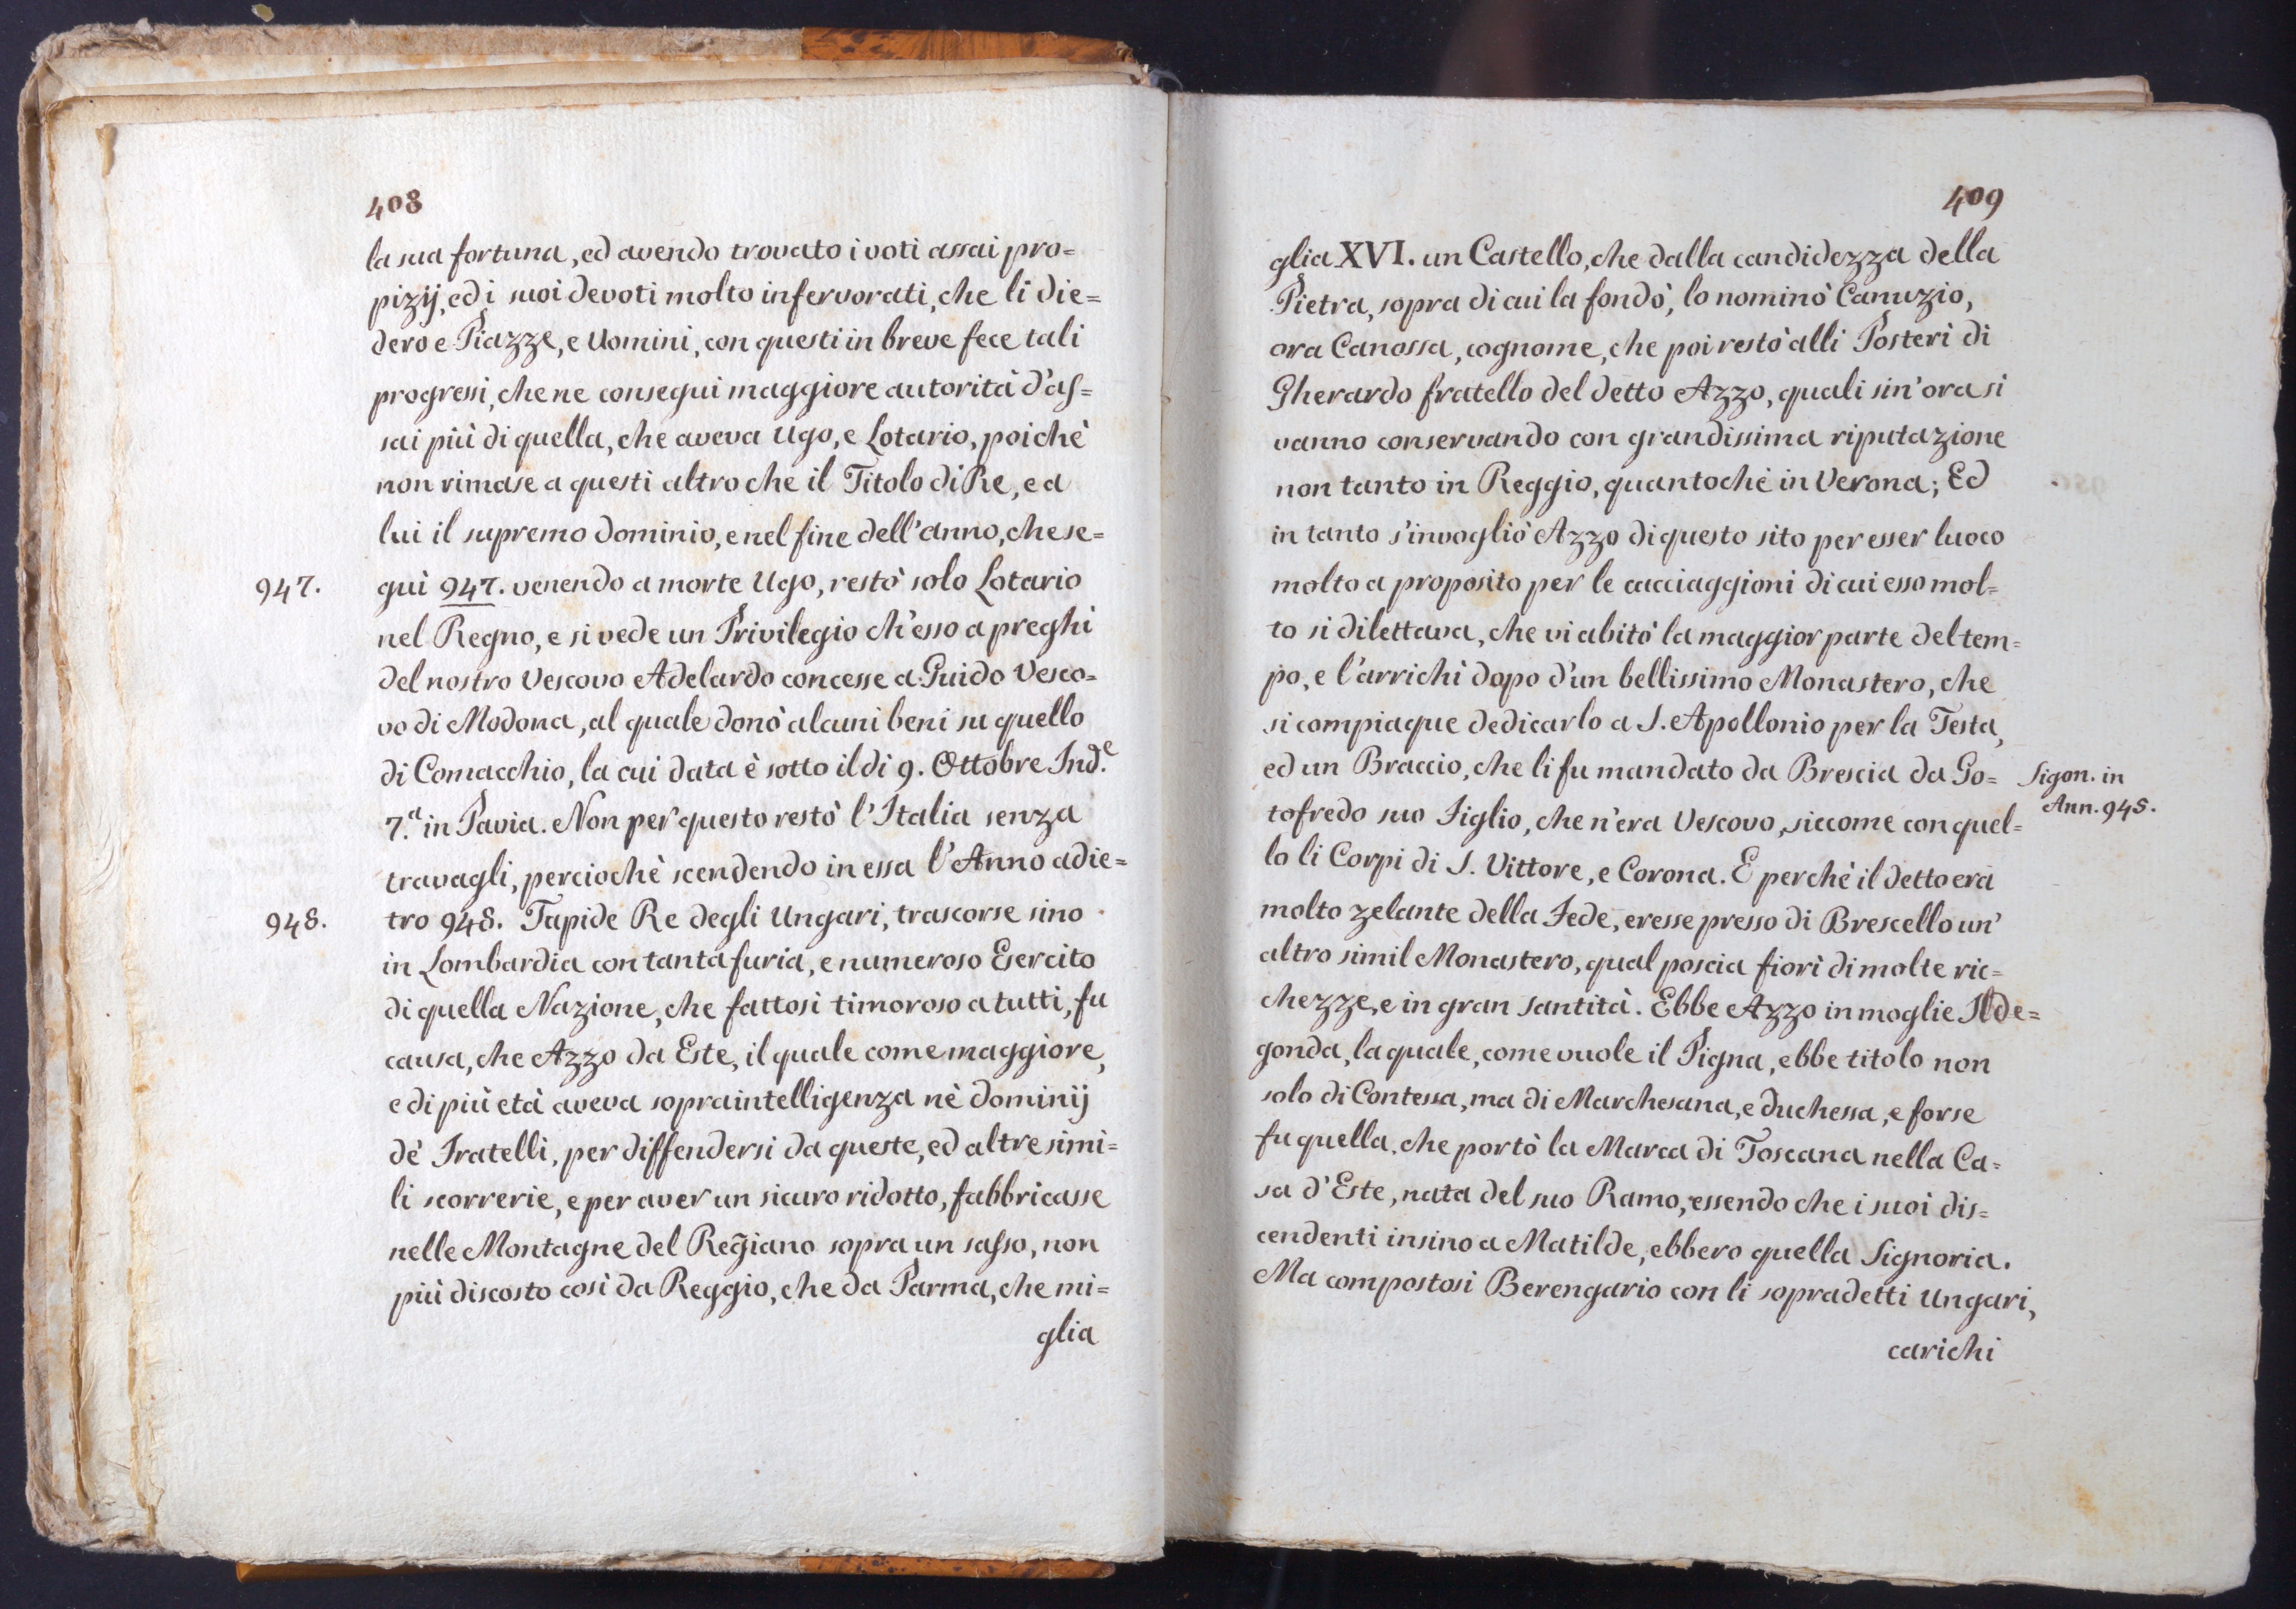 408
la sua fortuna, ed avendo trovato i voti assai pro=
pizij, ed i suoi devoti molto infervorati, che li die=
dero e Piazze, e Uomini, con questi in breve fece tali
progressi, che ne consegui maggiore autorità d'as=
sai più di quella, che aveva Ugo, e Lotario, poichè
non rimase a questi altro che il Titolo di Re, e a
lui il supremo dominio, e nel fine dell'anno, che se=
947. guì 947. venendo a morte Ugo, restò solo Lotario
nel Regno, e si vede un Privilegio ch'esso a preghi
del nostro Vescovo Adelardo concesse a Guido Vesco=
vo di Modona, al quale donò alcuni beni su quello
di Comacchio, la cui data è sotto il di 9. Ottobre Ind.e
7.a in Pavia. Non per questo restò l'Italia senza
travagli, perciochè scendendo in essa l'Anno adie=
948. tro 948. Tapide Re degli Ungari, trascorse sino
in Lombardia con tanta furia, e numeroso Esercito
di quella Nazione, che fattosi timoroso a tutti, fu
causa, che Azzo da Este, il quale come maggiore,
e di più età aveva sopraintelligenza nè dominij
dè Fratelli, per diffendersi da queste, ed altre simi=
li scorrerie, e per aver un sicuro ridotto, fabbricasse
nelle Montagne del Reg̃iano sopra un sasso, non
più discosto così da Reggio, che da Parma, che mi=
glia
409
glia XVI. un Castello, che dalla candidezza della
Pietra, sopra di cui la fondò, lo nominò Canuzio,
ora Canossa, cognome, che poi restò alli Posteri di
Gherardo fratello del detto Azzo, quali sin'ora si
vanno conservando con grandissima riputazione
non tanto in Reggio, quantochè in Verona; Ed
in tanto s'invogliò Azzo di questo sito per esser luoco
molto a proposito per le cacciaggioni di cui esso mol=
to si dilettava, che vi abitò la maggior parte del tem=
po, e l'arrichì dopo d'un bellissimo Monastero, che
si compiaque dedicarlo a S. Apollonio per la Testa,
ed un Braccio, che li fu mandato da Brescia da Go=
Sigon. in
Ann. 948.
tofredo suo Figlio, che n'era Vescovo, siccome con quel=
lo li Corpi di S. Vittore, e Corona. E perchè il detto era
molto zelante della Fede, eresse presso di Brescello un'
altro simil Monastero, qual poscia fiorì di molte ric=
chezze, e in gran Santità. Ebbe Azzo in moglie Ilde=
gonda, la quale, come vuole il Pigna, ebbe titolo non
solo di Contessa, ma di Marchesana, e Duchessa, e forse
fu quella, che portò la Marca di Toscana nella Ca=
sa d'Este, nata del suo Ramo, essendo che i suoi dis=
cendenti insino a Matilde, ebbero quella Signoria.
Ma compostosi Berengario con li sopradetti Ungari,
carichi